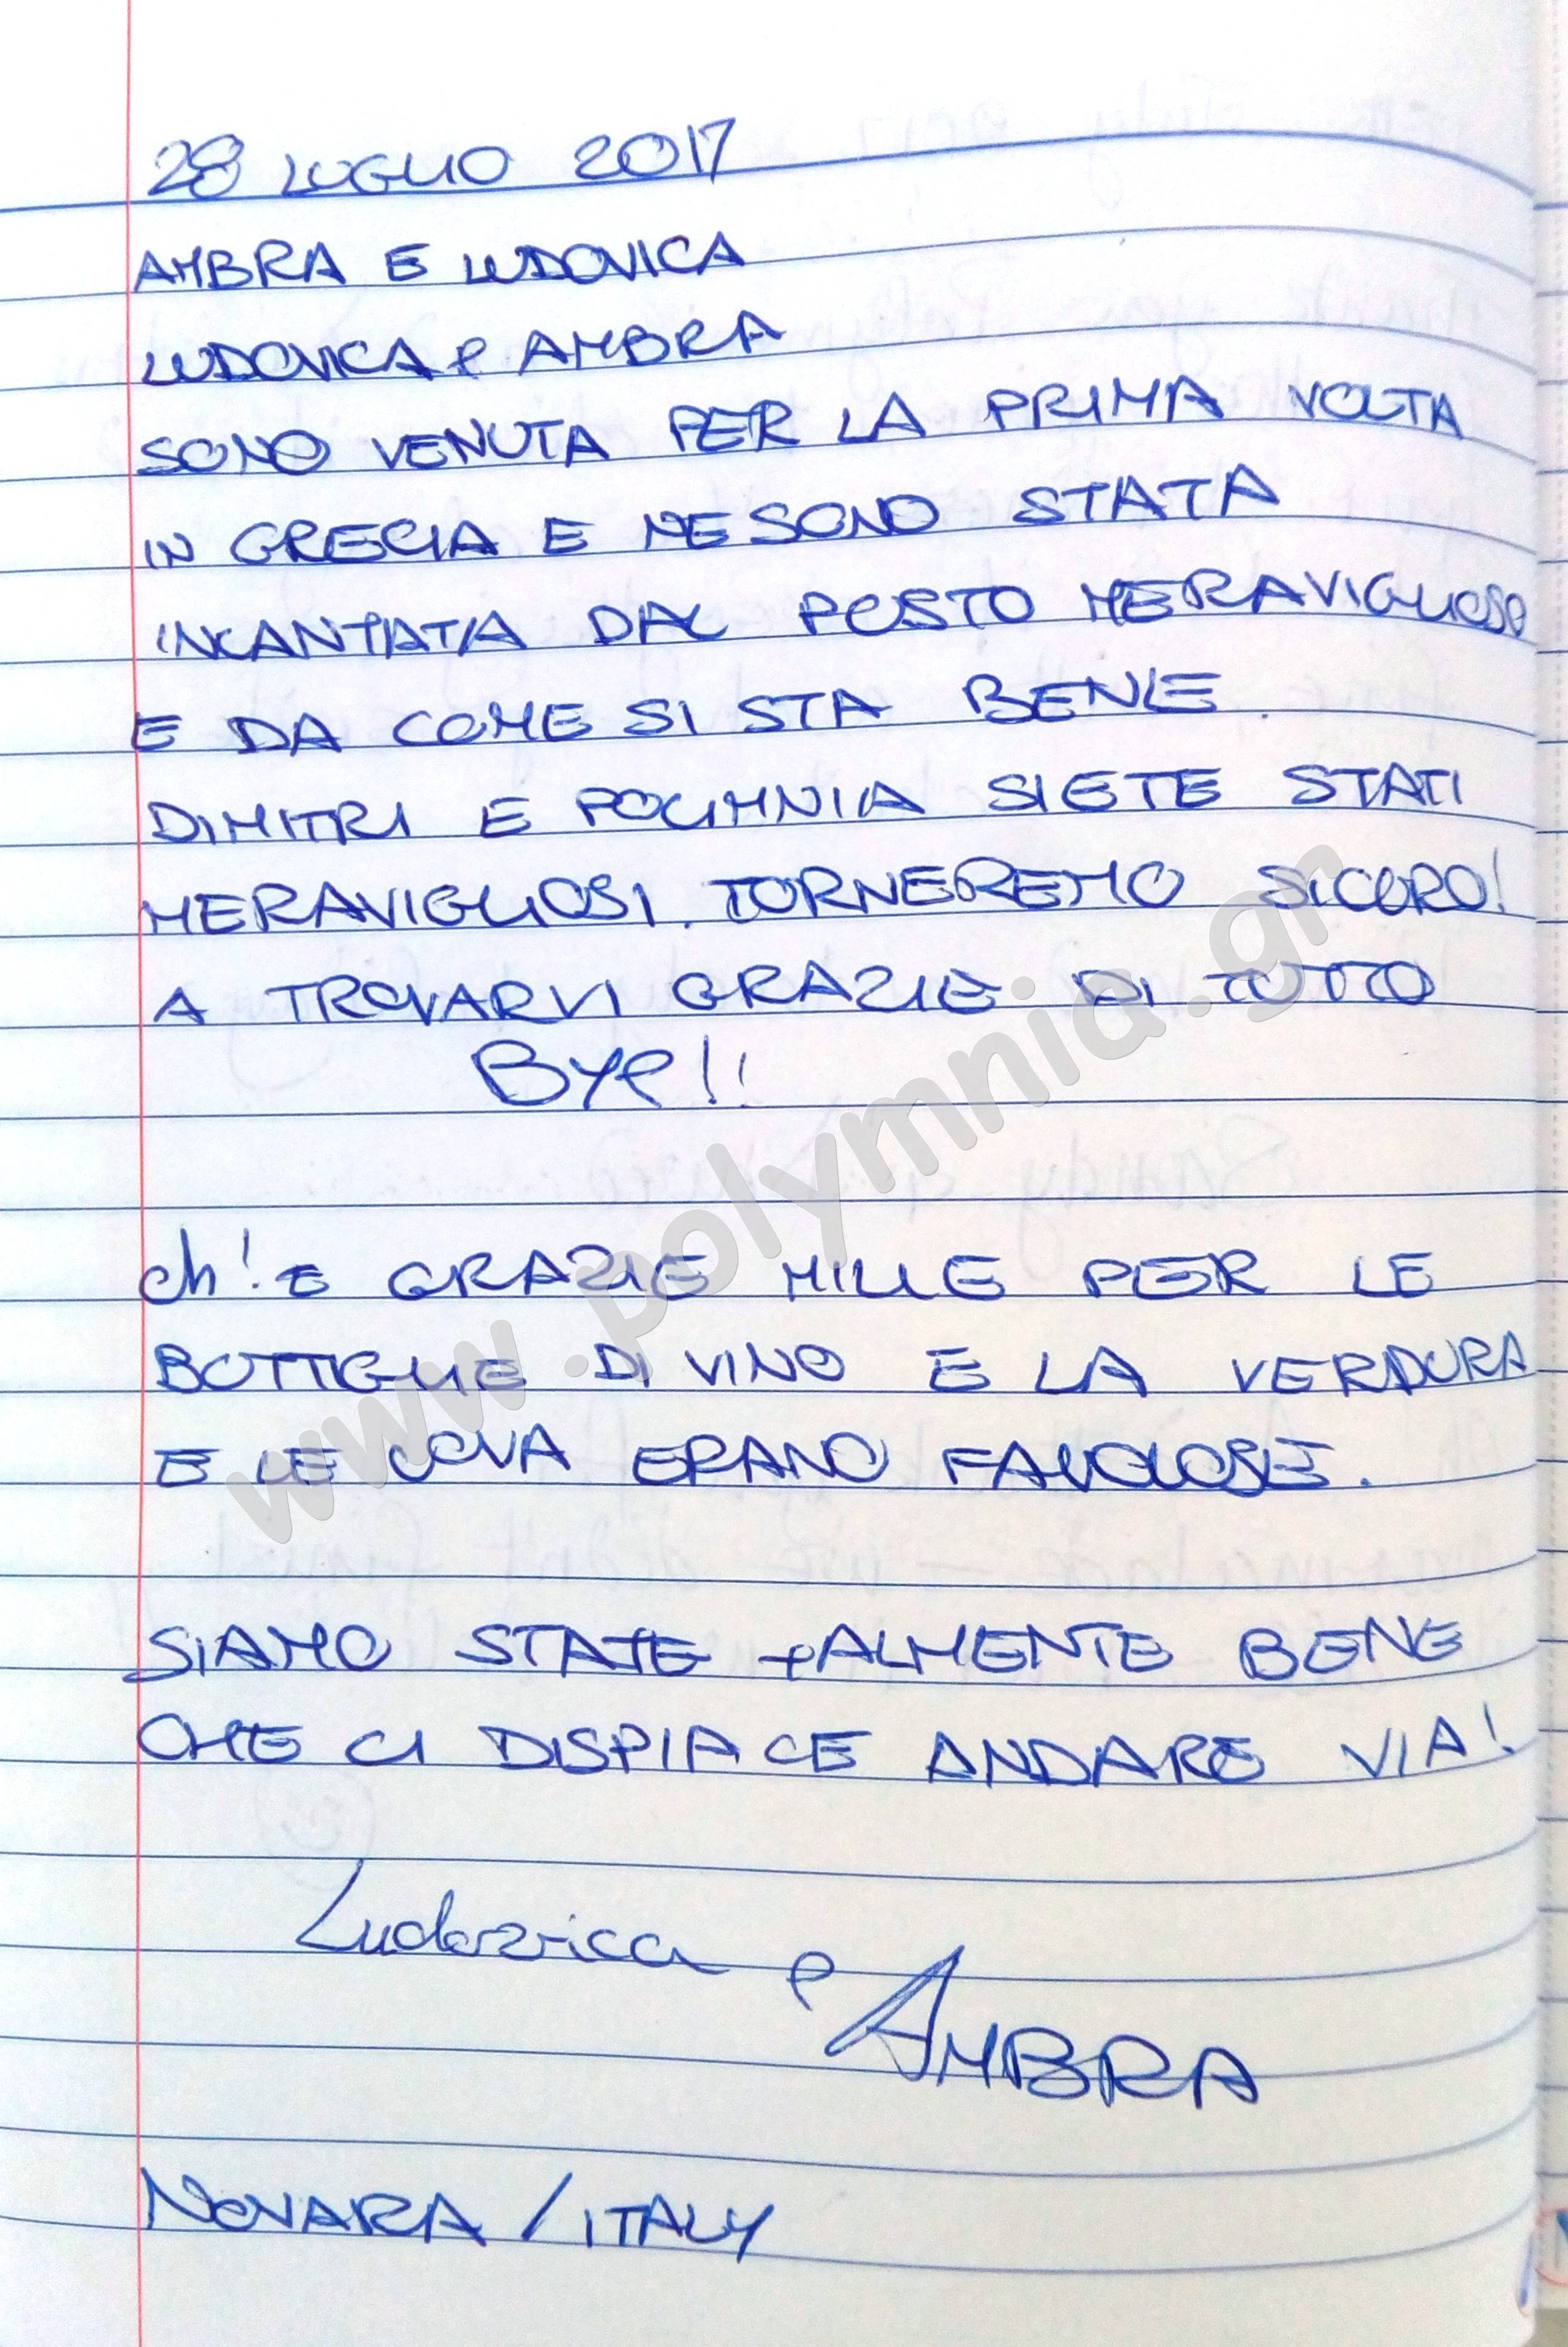 28 LUGLIO 2017
AMBRA E LUDOVICA
LUDOVICA e AMBRA
SONO VENUTA PER LA PRIMA VOLTA
IN GRECIA E NE SONO STATA
INCANTATA DAL POSTO MERAVIGLIOSO
E DA COME SI STA BENE.
DIMITRI E POLIMNIA SIETE STATI
MERAVIGLIOSI. TORNEREMO SICURO!
A TROVARVI GRAZIE DI TUTTO
BYe!!
eh! E GRAZIE MILLE PER LE
BOTTIGLIE DI VINO E LA VERDURA
E LE UOVA ERANO FAVOLOSE.
SIAMO STATE tALMENTE BENE
CHE CI DISPIACE ANDARE VIA!
Ludovica e AMBRA
NOVARA / ITALY
www.polymnia.gr